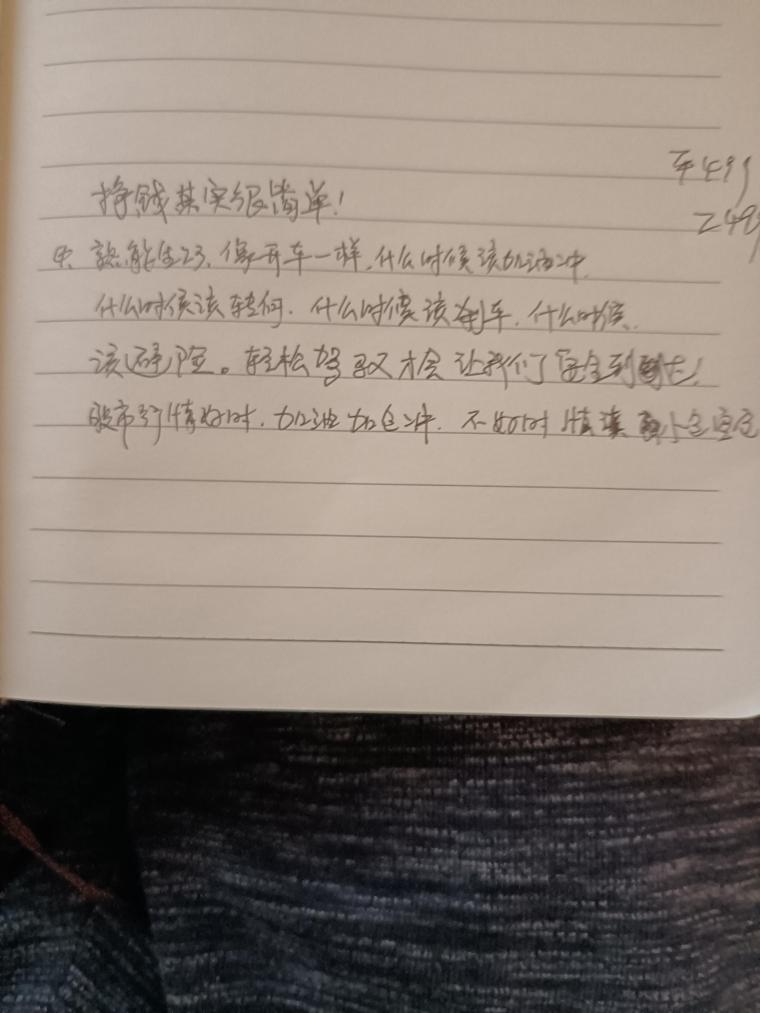 挣钱其实很简单！
熟能生巧、像开车一样，什么时候该加油冲，
什么时候该转向，什么时候该刹车，什么时候
该避险。轻松驾驶才会让我们安全到
股市行情好时，加油加仓冲，不好时慎
249